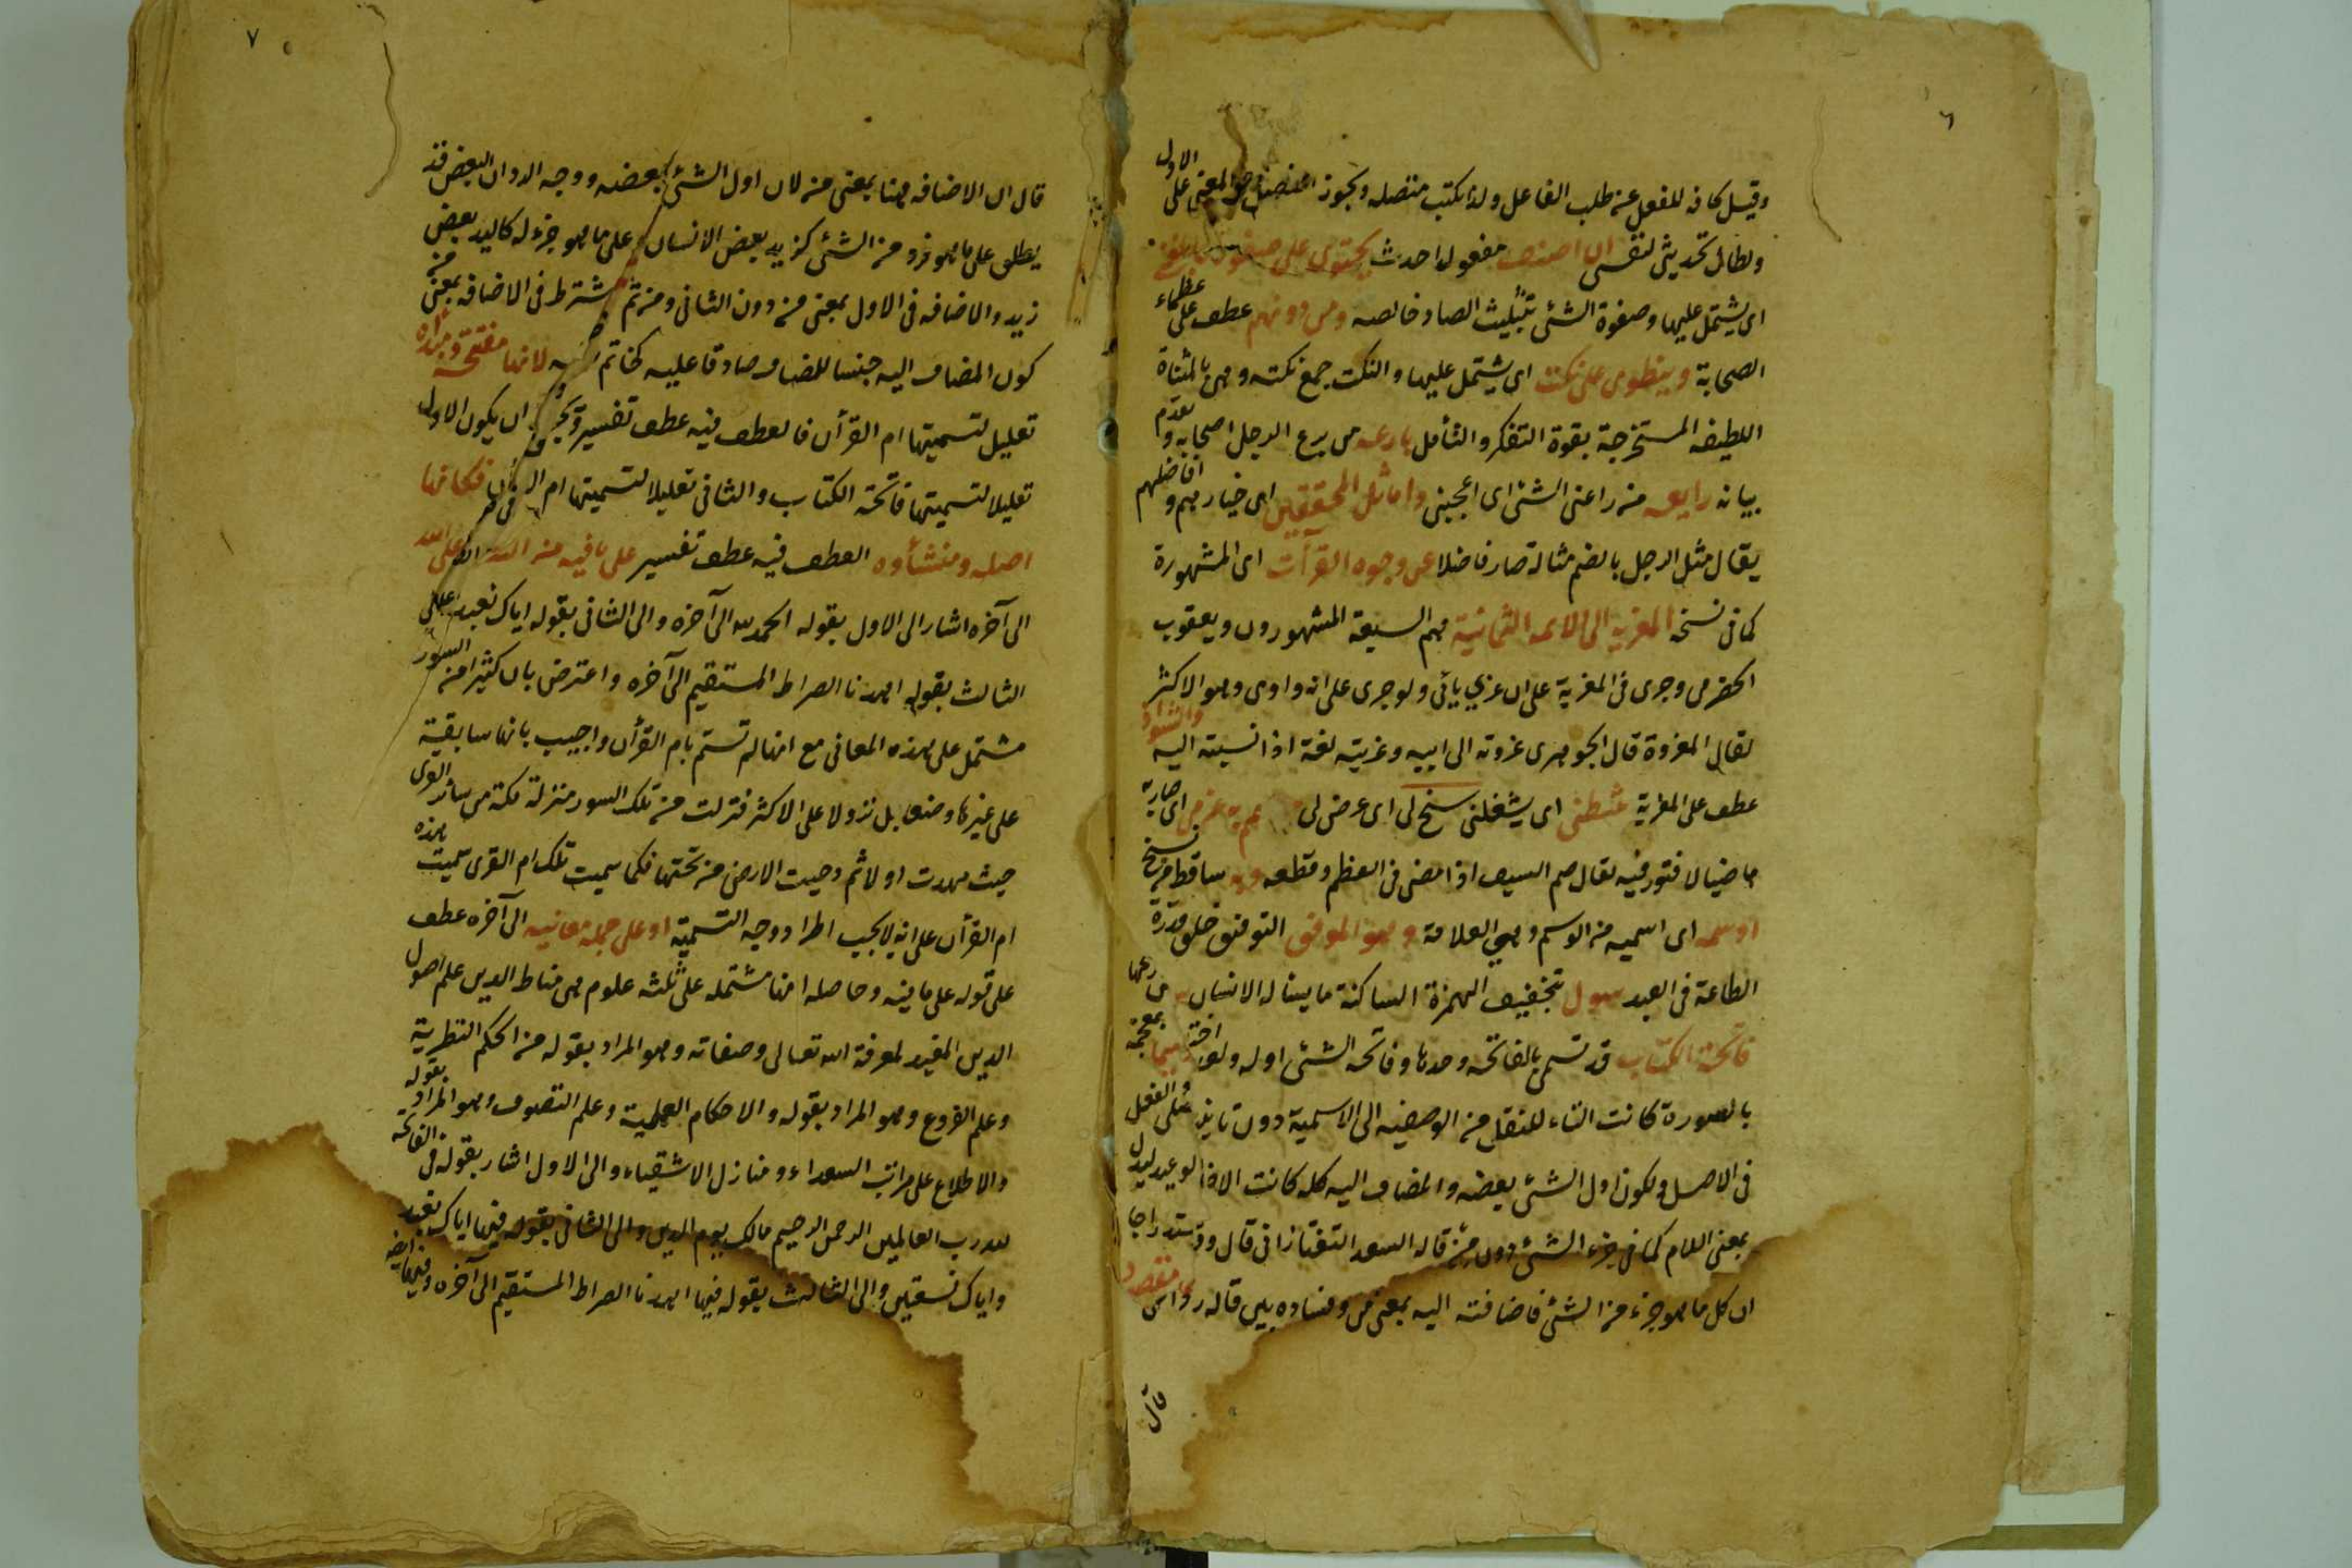 ٦
وقيل كافه للفعل عن طلب الفاعل ولذا يكتب متصله ويجوز المعنى على الاول
ولطال تحديثى لنفسى ان اصنف مفعول احدث يحتوى على صفوة ما بلغنى
اى يشتمل عليها وصفوة الشئ بتثليث الصاد خالصه ومن دونهم عطف على عظماء
الصحابة وينطوى على نكت اى يشتمل عليها والنكت جمع نكته وهى بالمثناة
اللطيفه المستخرجة بقوة التفكر والتأمل بارعه من برع الرجل اصحابه وتقدم
بيانه رايعه من راعنى الشئ اى اعجبنى واماثل المحققين اى خيارهم وافاضلهم
يقال مثل الرجل بالضم مثالة صار فاضلا عن وجوه القرآت اى المشهورة
كما فى نسخه المعزيه الى الائمه الثمانية هم السبعة المشهورون ويعقوب
الحضرمى وجرى فى المعزية على ان عزى يائى ولو جرى على انه واوى وهو الاكثر
لقال المعزوة قال الجوهرى عزوته الى ابيه وعزيته لغة اذا نسبته اليه والشواذ
عطف على المعزية ثبطنى اى يشغلنى سنح لى اى عرض لى عزمى اى صار به
ماضيا لا فتور فيه يقال صمم السيف اذا مضى فى العظم وقطعه وبه ساقط من نسخ
اوسمه اى اسميه من الوسم وهى العلامة وهو الموفق التوفيق خلق قدرة
الطاعة فى العبد سول بتخفيف الهمزة الساكنة ما يسئاله الانسان
فاتحة الكتاب قد تسمى بالفاتحه وحدها وفاتحه الشئ اوله
بالسورة كانت التاء للنقل من الوصفيه الى الاسمية دون تانيث
فى الاصل ولكون اول الشئ بعضه والمضاف اليه كله كانت الاضا
بمعنى اللام كما فى جزء الشئ دون من قاله السعد التفتازانى قال
ان كل ما هو جزء من الشئ فاضافته اليه بمعنى من وفساده بين قاله ردا
قال
٧
قال ان الاضافه هنا بمعنى من لان اول الشئ بعضه ووجه الرد ان البعض قد
يطلق على ما هو فرد من الشئ كزيد بعض الانسان وعلى ما هو جزء له كاليد بعض
زيد والاضافه فى الاول بمعنى من دون الثانى ومن ثم اشترط فى الاضافه بمعنى من
كون المضاف اليه جنسا للمضاف صادقا عليه كخاتم فضه لانها مفتتحه ومبدأه
تعليل لتسميتها ام القرآن فالعطف فيه عطف تفسير ويجوز ان يكون الاول
تعليلا لتسميتها فاتحة الكتاب والثانى تعليلا لتسميتها ام القرآن فكانها
اصله ومنشأوه العطف فيه عطف تفسير على ما فيه من الثناء على الله
الى آخره اشار الى الاول بقوله الحمد لله الى آخره والى الثانى بقوله اياك نعبد والى
الثالث بقوله اهدنا الصراط المستقيم الى آخره واعترض بان كثيرا من السور
مشتمل على هذه المعانى مع انها لم تسم بام القرآن واجيب بانها سابقية
على غيرها وضعا بل نزولا على الاكثر فنزلت من تلك السور منزلة مكة من سائر القرى
حيث مهدت اولا ثم دحيت الارض من تحتها فكما سميت تلك ام القرى سميت هذه
ام القرآن على انه لا يجب اطراد وجه التسمية او على جملة معانيه الى آخره عطف
على قوله على ما فيه وحاصله انها مشتمله على ثلثه علوم هى مناط الدين علم اصول
الدين المفيد لمعرفة الله تعالى وصفاته وهو المراد بقوله من الحكم النظرية
وعلم الفروع وهو المراد بقوله والاحكام العملية وعلم التصوف وهو المراد بقوله
والاطلاع على مراتب السعداء ومنازل الاشقياء والى الاول اشار بقوله فى الفاتحه
لله رب العالمين الرحمن الرحيم مالك يوم الدين والى الثانى بقوله فيها اياك نعبد
واياك نستعين والى الثالث بقوله فيها اهدنا الصراط المستقيم الى آخره